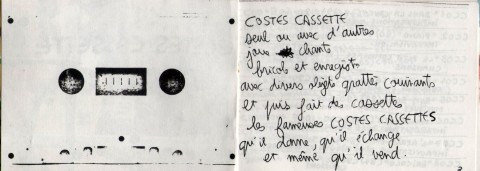 COSTES CASSETTE
seul ou avec d'autres
joue chante
bricole et enregistre
avec divers objets grattes couinants
et puis fait des cassettes
les fameuses COSTES CASSETTES
qu'il donne, qu'il échange
et même qu'il vend.